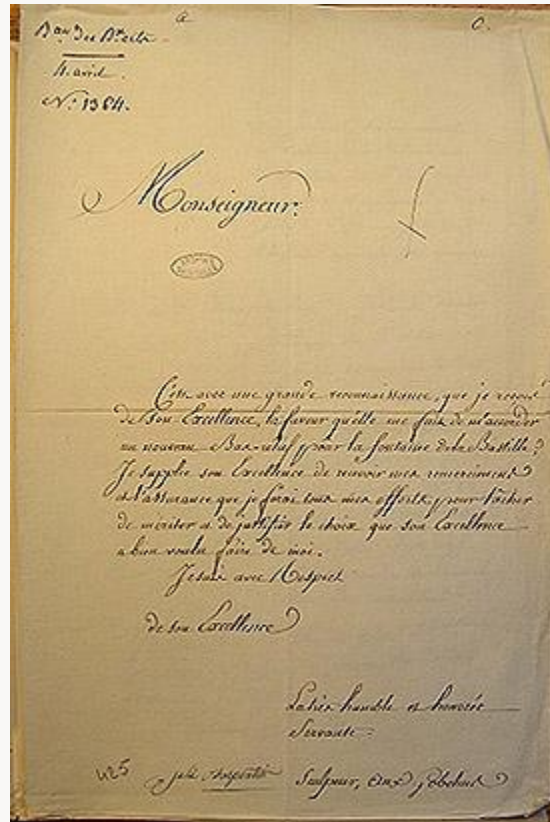 a C.
Bau des Bx arts
4 avril.
N: 1384.
Monseigneur:
C'est avec une grande reconnaissance, que je reçois
de Son Excellence, la faveur qu'elle me fait de m'accorder
un nouveau Bas-relief pour la fontaine de la Bastille;
Je supplie son Excellence de recevoir mes remerciments
et l'assurance que je ferai tous mes efforts pour tâcher
de mériter et de justifier le choix que son Excellence
a bien voulu faire de moi.
Je suis avec Respect
de son Excellence
La très humble et
Servante.
425 Julie Charpentier Sculpteur, aux gobelins